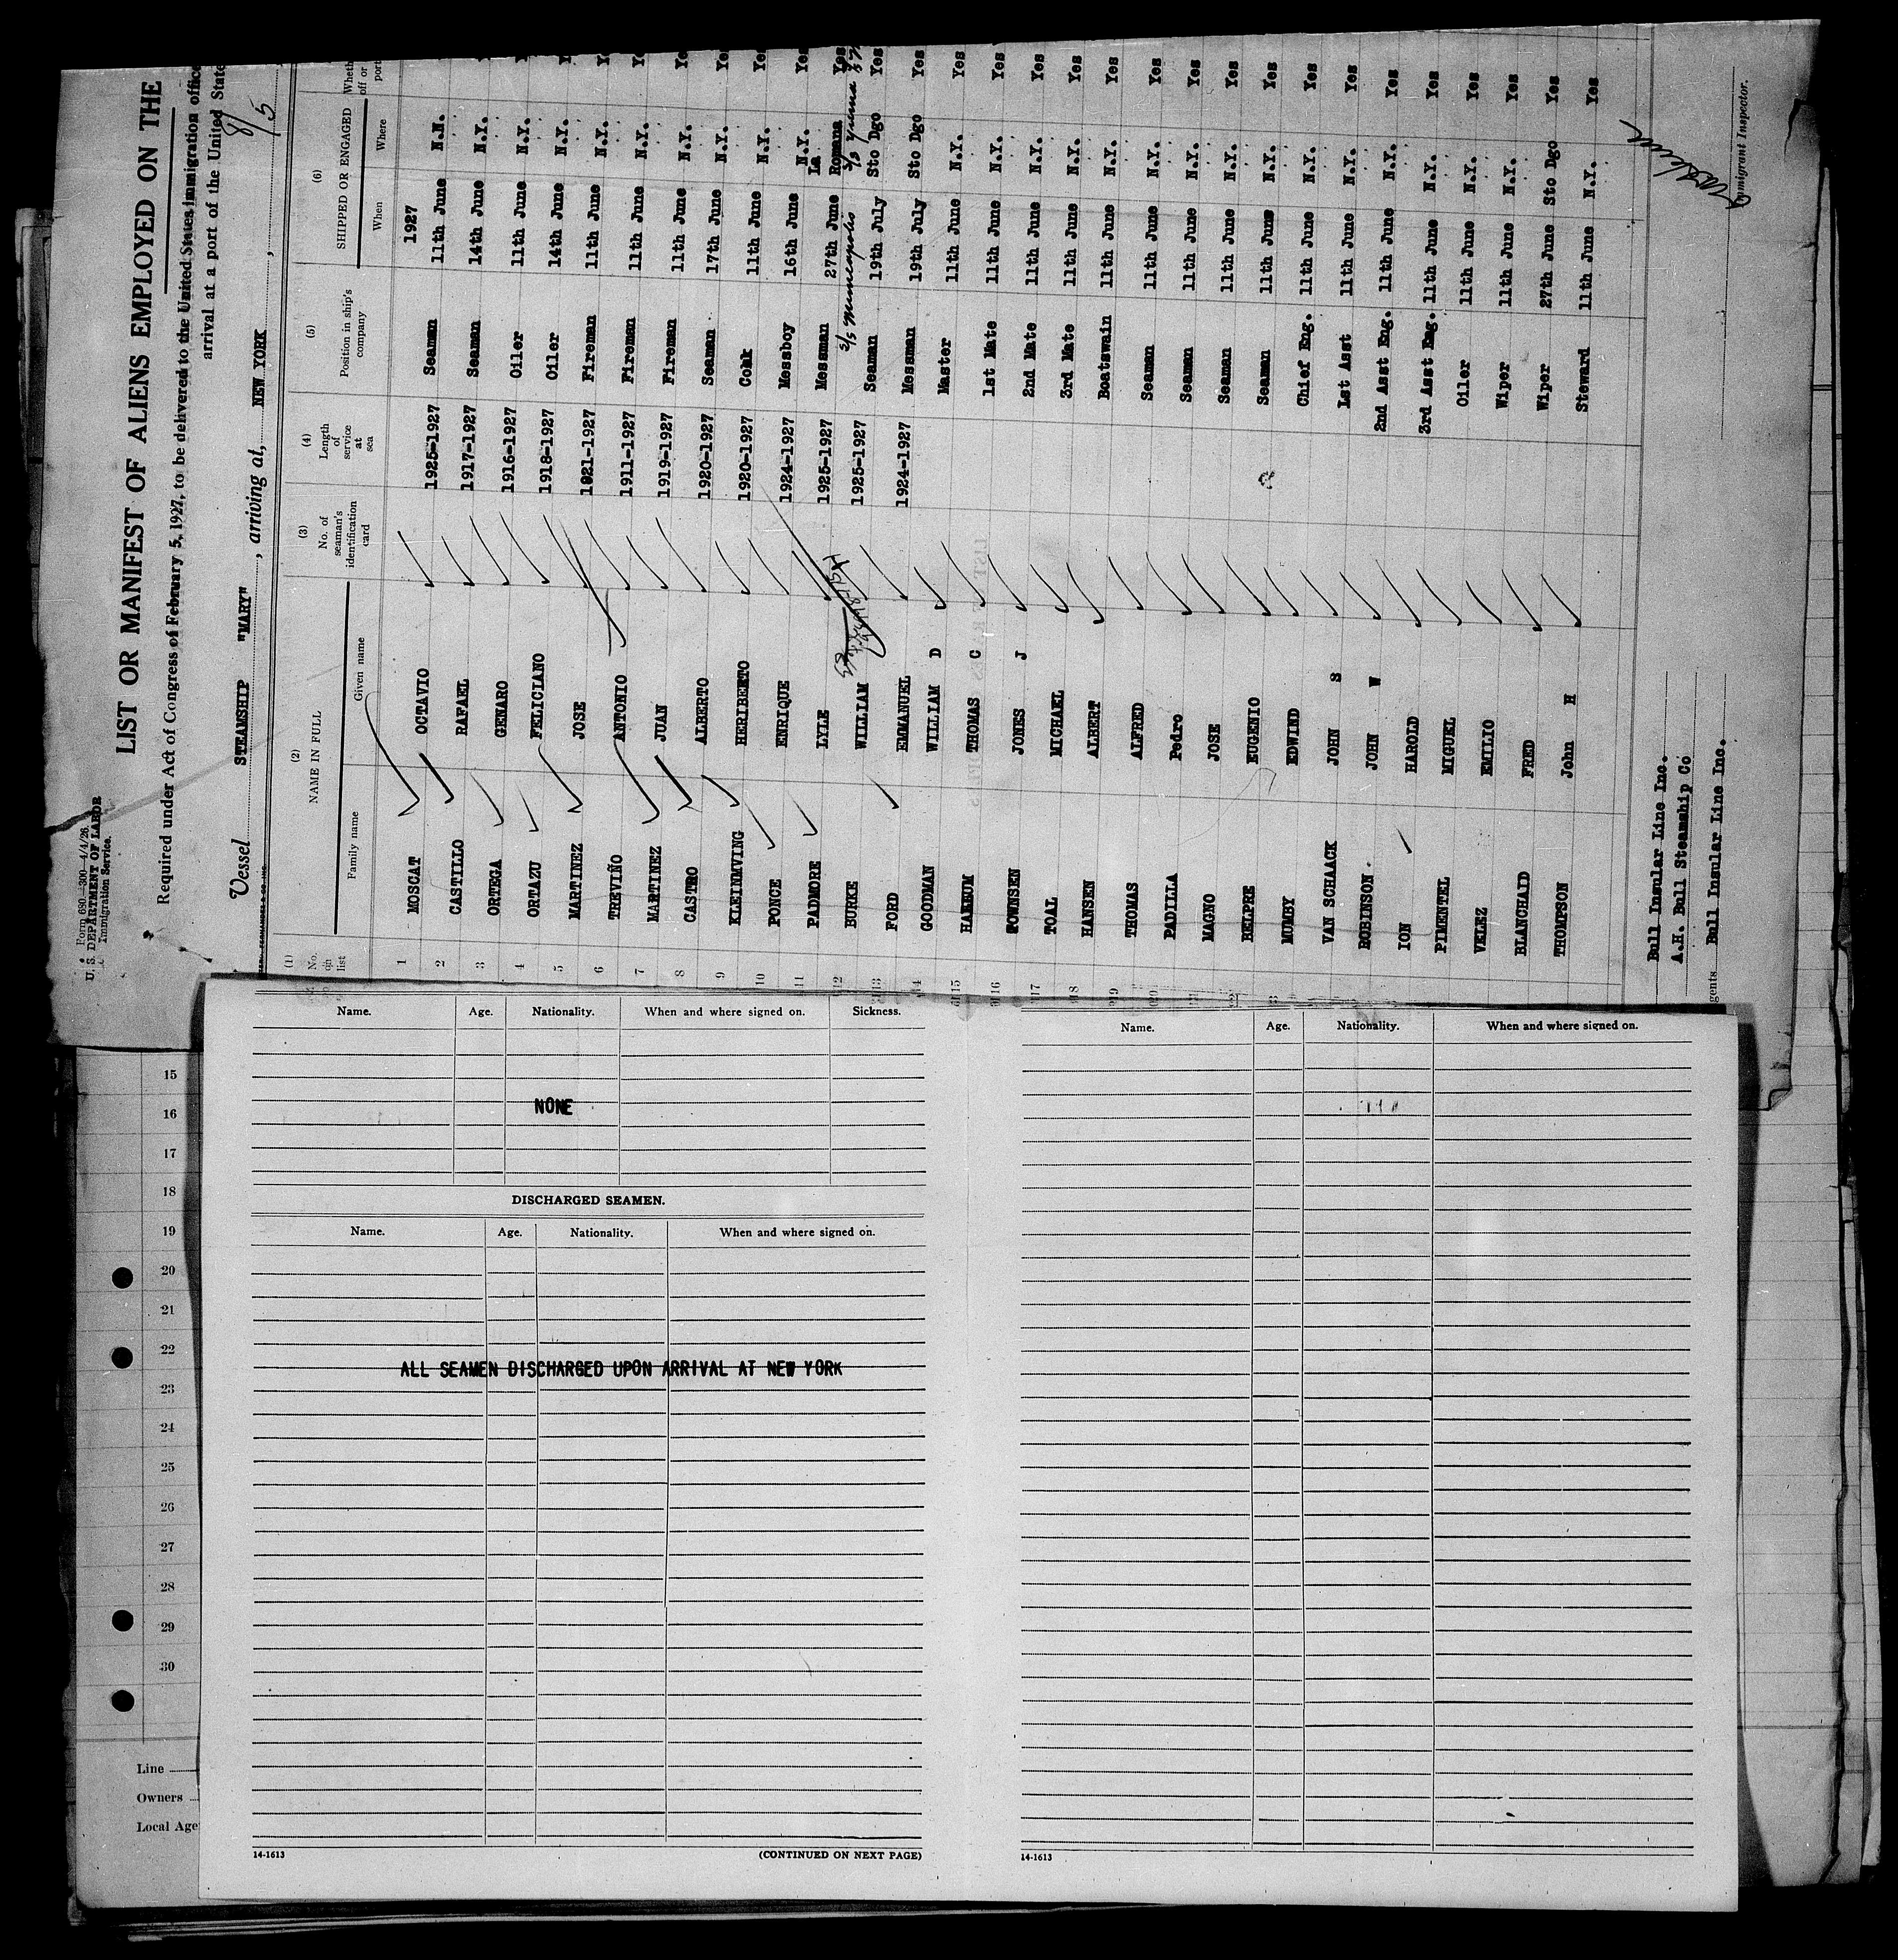 Form 680—300—4/4/26.
U. S. DEPARTMENT OF LABOR
Immigration Service.
LIST OR MANIFEST OF ALIENS EMPLOYED ON THE
Required under Act of Congress of February 5, 1927, to be delivered to the United States immigration office
arrival at a port of the United State
8/5
Vessel STEAMSHIP "MARY", arriving at, NEW YORK,
(1) (2) (3) (4) (5) (6)
No. on list NAME IN FULL No. of seaman's identification card Length of service at sea Position in ship's company SHIPPED OR ENGAGED Wheth off or port
Family name Given name When Where
1927
1 MOSCAT OCTAVIO 1925-1927 Seaman 11th June N.N. Ye
2 CASTILLO RAFAEL 1917-1927 Seaman 14th June N.Y.
3 ORTEGA GENARO 1916-1927 Oiler 11th June N.Y.
4 ORTAZU FELICIANO 1918-1927 Oiler 14th June N.Y.
5 MARTINEZ JOSE 1921-1927 Fireman 11th June N.Y. Y
6 TREVIÑO ANTONIO 1911-1927 Fireman 11th June N.Y. Y
7 MARTINEZ JUAN 1919-1927 Fireman 11th June N.Y. Ye
8 CASTRO ALBERTO 1920-1927 Seaman 17th June N.Y. Ye
9 KLEINMVING HERIBERTO 1920-1927 Cook 11th June N.Y. Ye
10 PONCE ENRIQUE 1924-1927 Messboy 16th June N.Y. Ye
11 PADMORE LYLE 1925-1927 Messman 27th June La Romana Yes
S/S
12 BURKE WILLIAM 1925-1927 Seaman 19th July Sto Dgo Yes
13 FORD EMMANUEL 1924-1927 Messman 19th July Sto Dgo Yes
14 GOODMAN WILLIAM D Master 11th June N.Y. Yes
15 HARBUM THOMAS C 1st Mate 11th June N.Y. Yes
16 TOWNSEN JONES J 2nd Mate 11th June N.Y. Yes
17 TOAL MICHAEL 3rd Mate 11th June N.Y. Yes
18 HANSEN ALBERT Boatswain 11th June N.Y. Yes
19 THOMAS ALFRED Seaman 11th June N.Y. Yes
20 PADILLA Pedro Seaman 11th June N.Y. Yes
21 MAGNO JOSE Seaman 11th June N.Y. Yes
22 BELPRE EUGENIO Seaman 11th June N.Y. Yes
MUMBY EDWIND Chief Eng. 11th June N.Y. Yes
VAN SCHAACK JOHN S 1st Asst 11th June N.Y. Yes
ROBINSON JOHN W 2nd Asst Eng. 11th June N.Y. Yes
ION HAROLD 3rd Asst Eng. 11th June N.Y. Yes
PIMENTEL MIGUEL Oiler 11th June N.Y. Yes
VELEZ EMILIO Wiper 11th June N.Y. Yes
BLANCHAID FRED Wiper 27th June Sto Dgo Yes
THOMPSON John H Steward 11th June N.Y. Yes
Bull Insular Line Inc.
A.H. Bull Steamship Co
gents Bull Insular Line Inc.
Immigrant Inspector.
15
16
17
18
19
20
21
22
23
24
25
26
27
28
29
30
Line
Owners
Local Age
Name. Age. Nationality. When and where signed on. Sickness.
NONE
DISCHARGED SEAMEN.
Name. Age. Nationality. When and where signed on.
ALL SEAMEN DISCHARGED UPON ARRIVAL AT NEW YORK
14-1613 (CONTINUED ON NEXT PAGE)
Name. Age. Nationality. When and where signed on.
14-1613